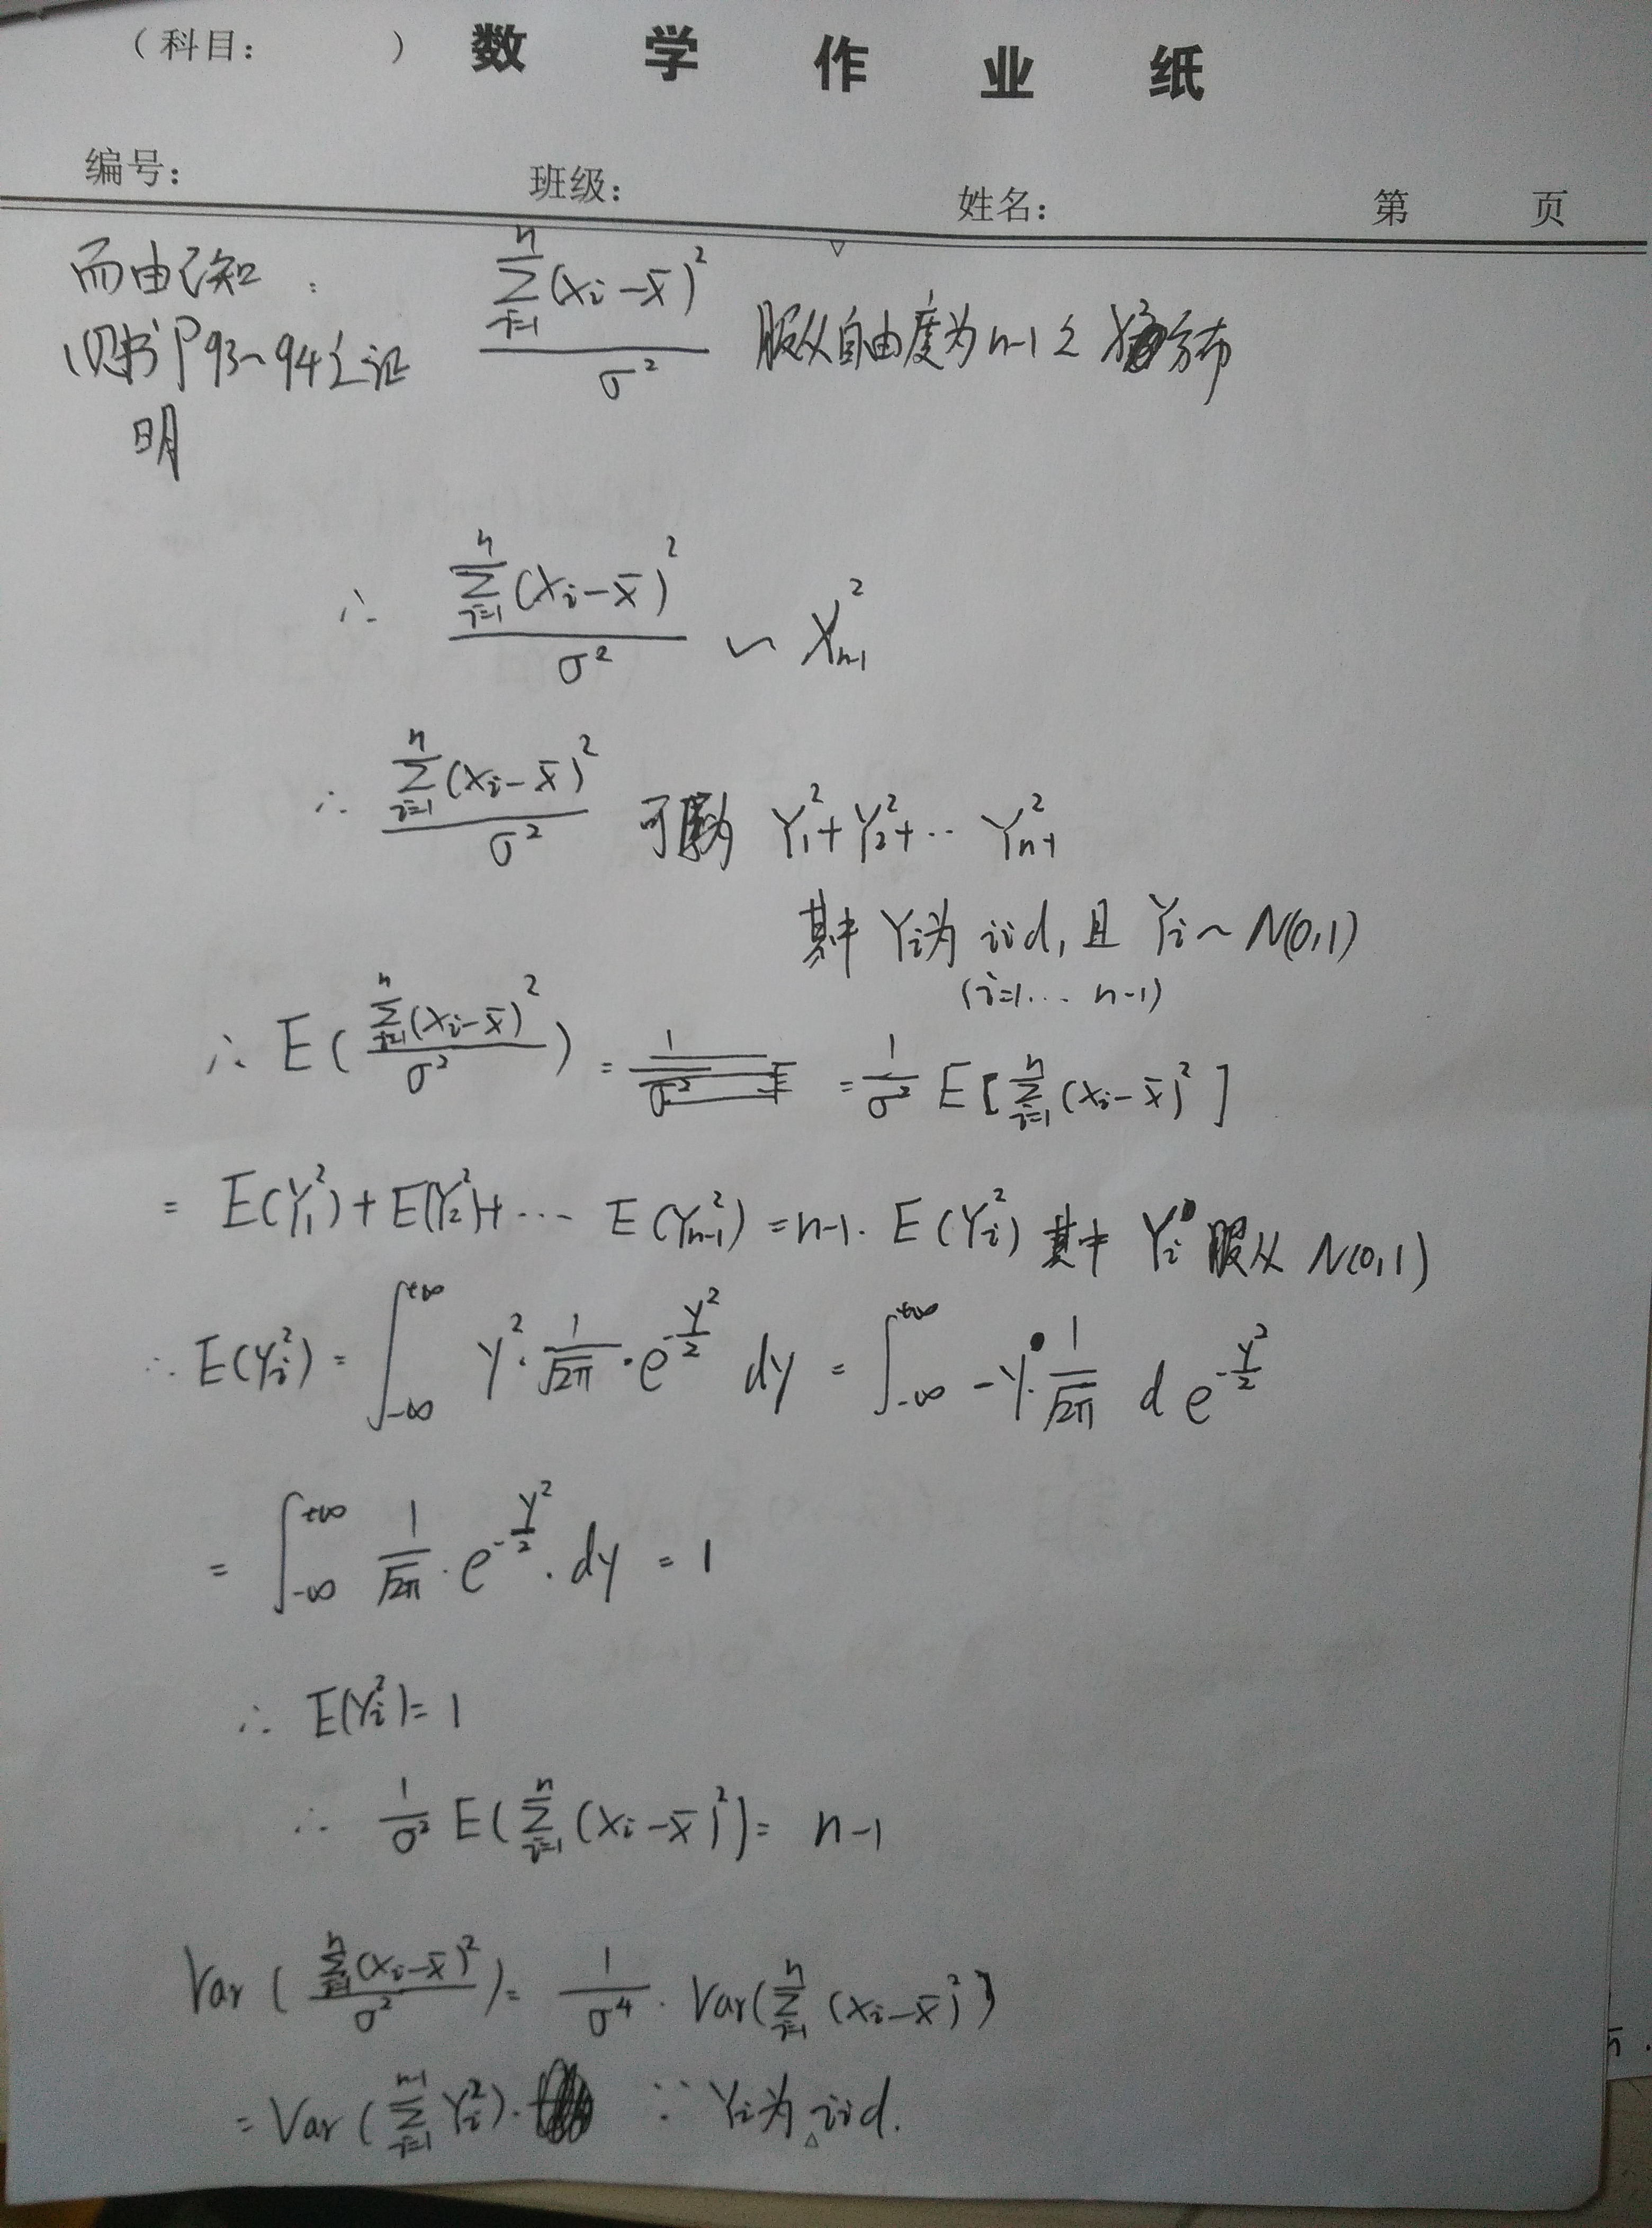 (科目: ) 数 学 作 业 纸
编号: 班级: 姓名: 第 页
而由已知: \frac{\sum_{i=1}^{n}(x_i-\bar{x})^2}{\sigma^2} 服从自由度为n-1之χ²分布
(见书P93~94之证
明
∴ \frac{\sum_{i=1}^{n}(x_i-\bar{x})^2}{\sigma^2} ~ χ^2_{n-1}
∴ \frac{\sum_{i=1}^{n}(x_i-\bar{x})^2}{\sigma^2} 可 为 Y_1^2+Y_2^2+… Y_{n-1}^2
其中 Y_i为 iid, 且 Y_i ~ N(0,1)
(i=1… n-1)
∴ E(\frac{\sum_{i=1}^{n}(x_i-\bar{x})^2}{\sigma^2}) = = \frac{1}{\sigma^2} E[\sum_{i=1}^{n}(x_i-\bar{x})^2]
= E(Y_1^2)+E(Y_2^2)+… E(Y_{n-1}^2) = n-1. E(Y_i^2) 其中 Y_i 服从 N(0,1)
∴ E(Y_i^2) = \int_{-∞}^{+∞} y^2·\frac{1}{\sqrt{2π}}·e^{-\frac{y^2}{2}} dy = \int_{-∞}^{+∞} -y·\frac{1}{\sqrt{2π}} d e^{-\frac{y^2}{2}}
= \int_{-∞}^{+∞} \frac{1}{\sqrt{2π}}·e^{-\frac{y^2}{2}}·dy = 1
∴ E(Y_i^2)=1
∴ \frac{1}{\sigma^2} E(\sum_{i=1}^{n}(x_i-\bar{x})^2) = n-1
Var(\frac{\sum_{i=1}^{n}(x_i-\bar{x})^2}{\sigma^2}) = \frac{1}{\sigma^4}·Var(\sum_{i=1}^{n}(x_i-\bar{x})^2)
= Var(\sum_{i=1}^{n-1} Y_i^2). ∵ Y_i为iid.